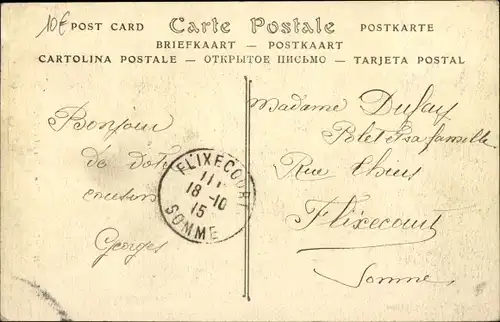 10€ POST CARD Carte Postale POSTKARTE
BRIEFKAART — POSTKAART
CARTOLINA POSTALE — ОТКРЫТОЕ ПИСЬМО — TARJETA POSTAL
Bonjour
de
Georges
FLIXECOURT
18-10
15
SOMME
Madame Dufay
Polet & sa famille
Rue Thiers
Flixecourt
Somme